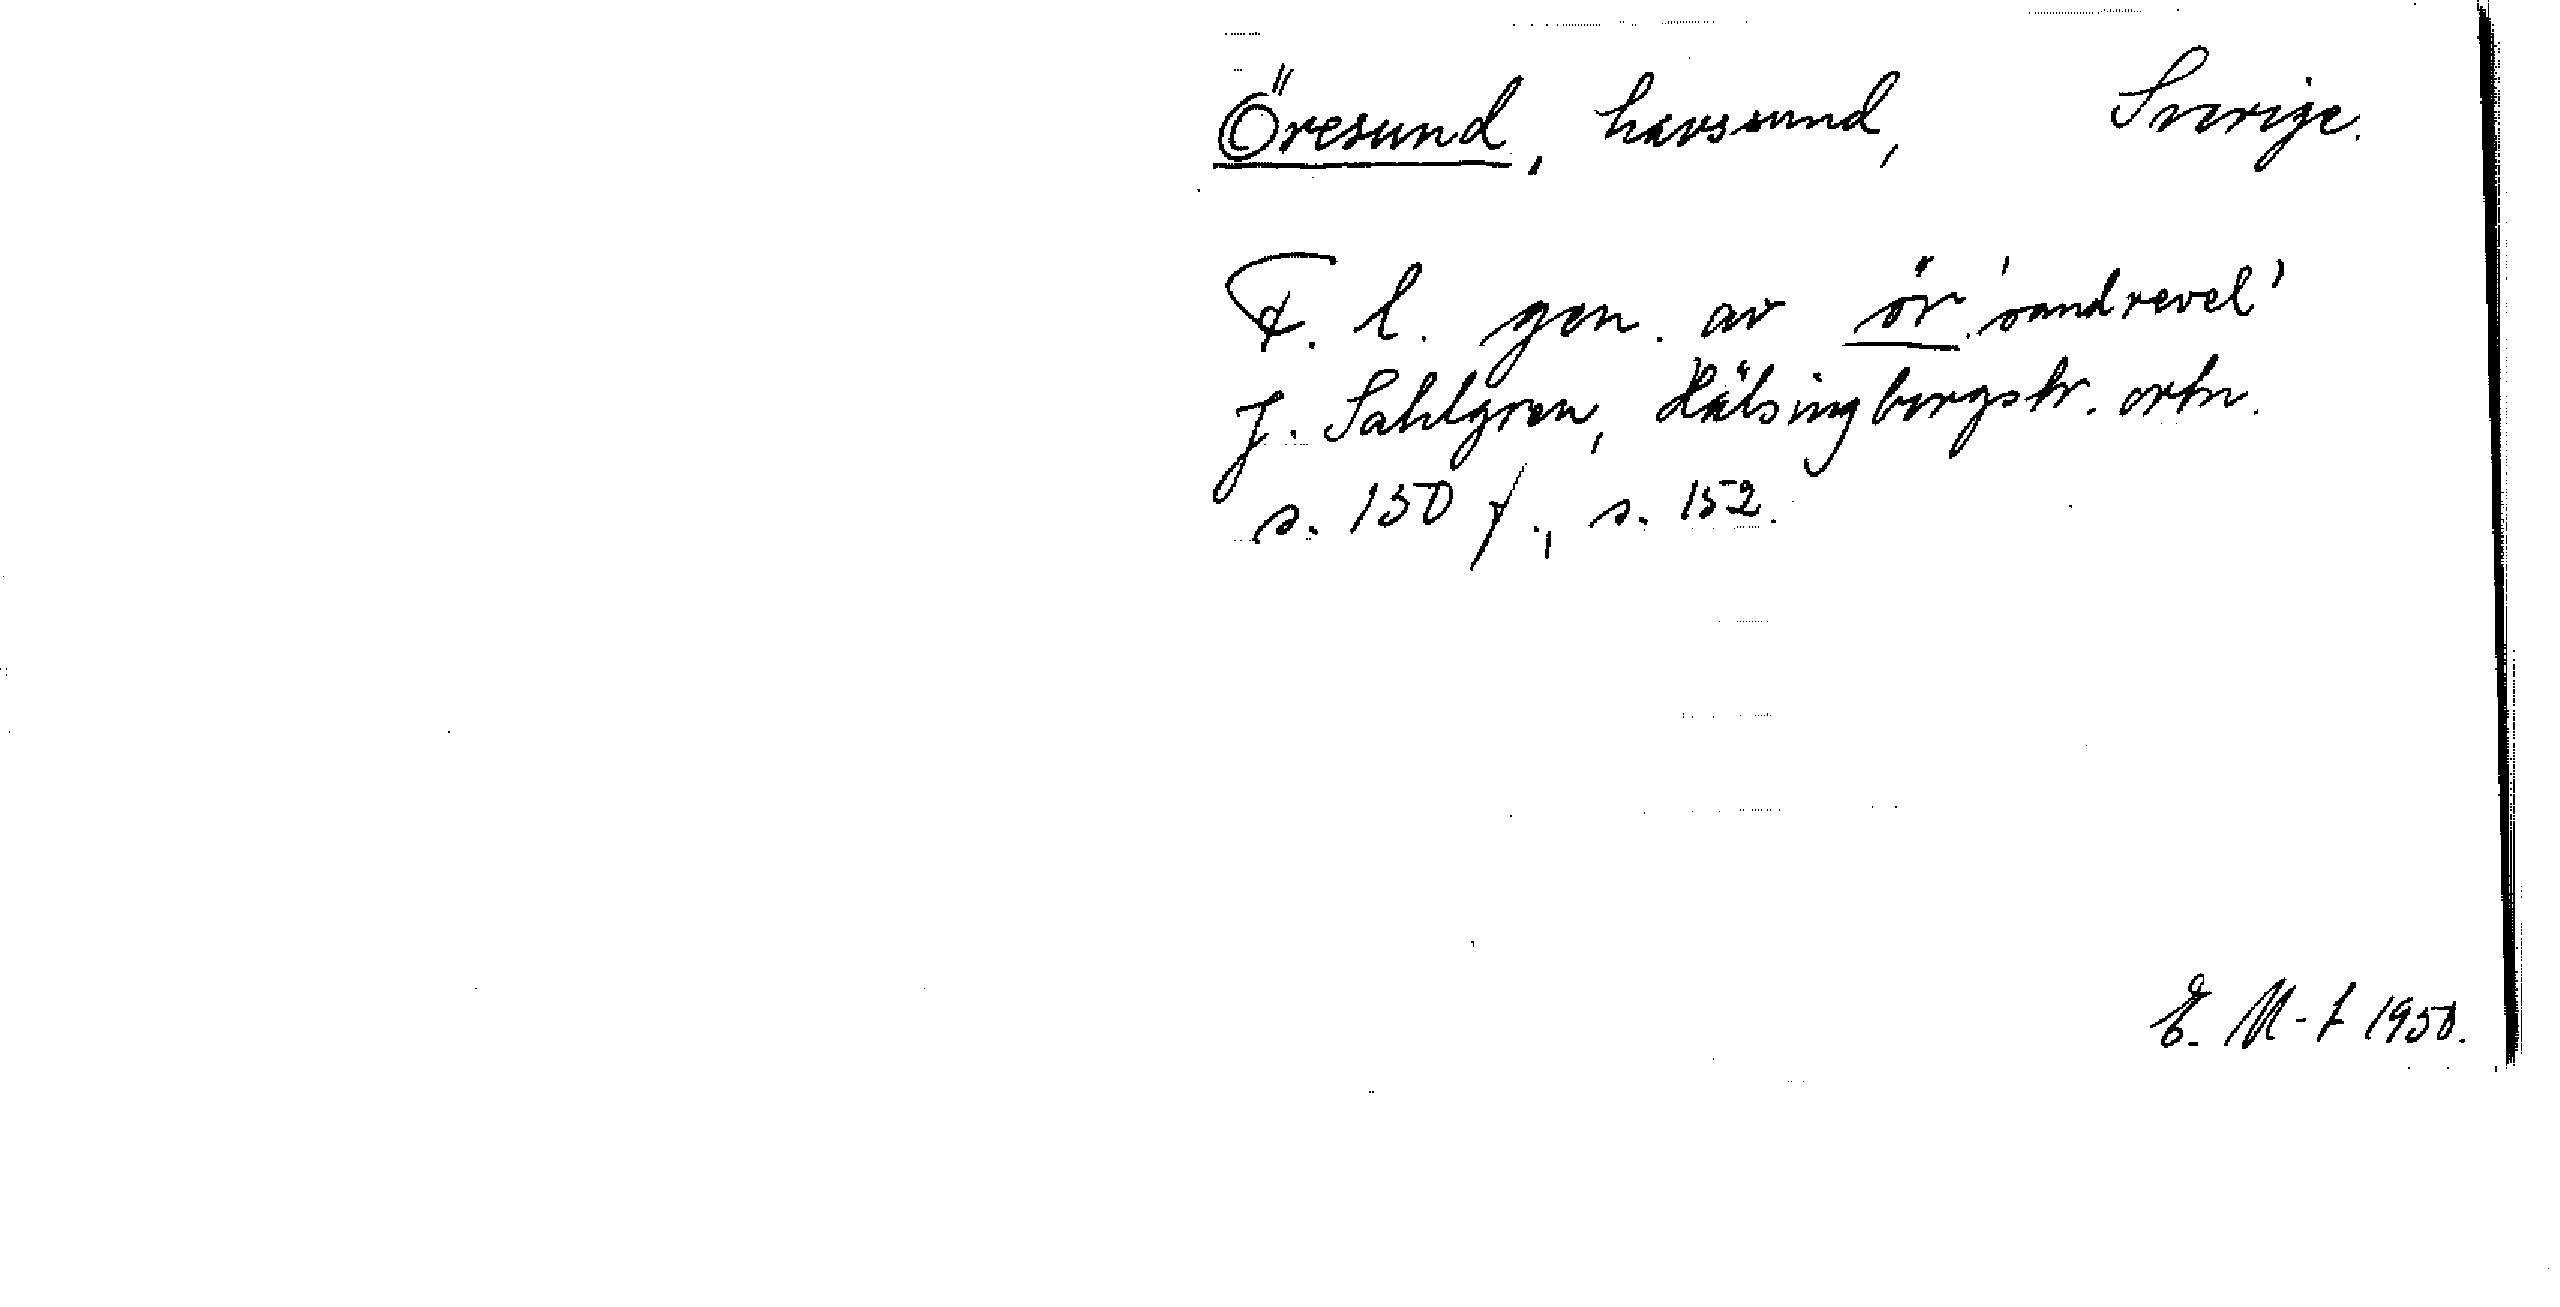 Öresund, havssund, Sverige.
F. l. gen. av ör 'sandrevel'
J. Sahlgren, Hälsingborgstr. ortn.
s. 150 f., s. 152.
E. M-t 1950.